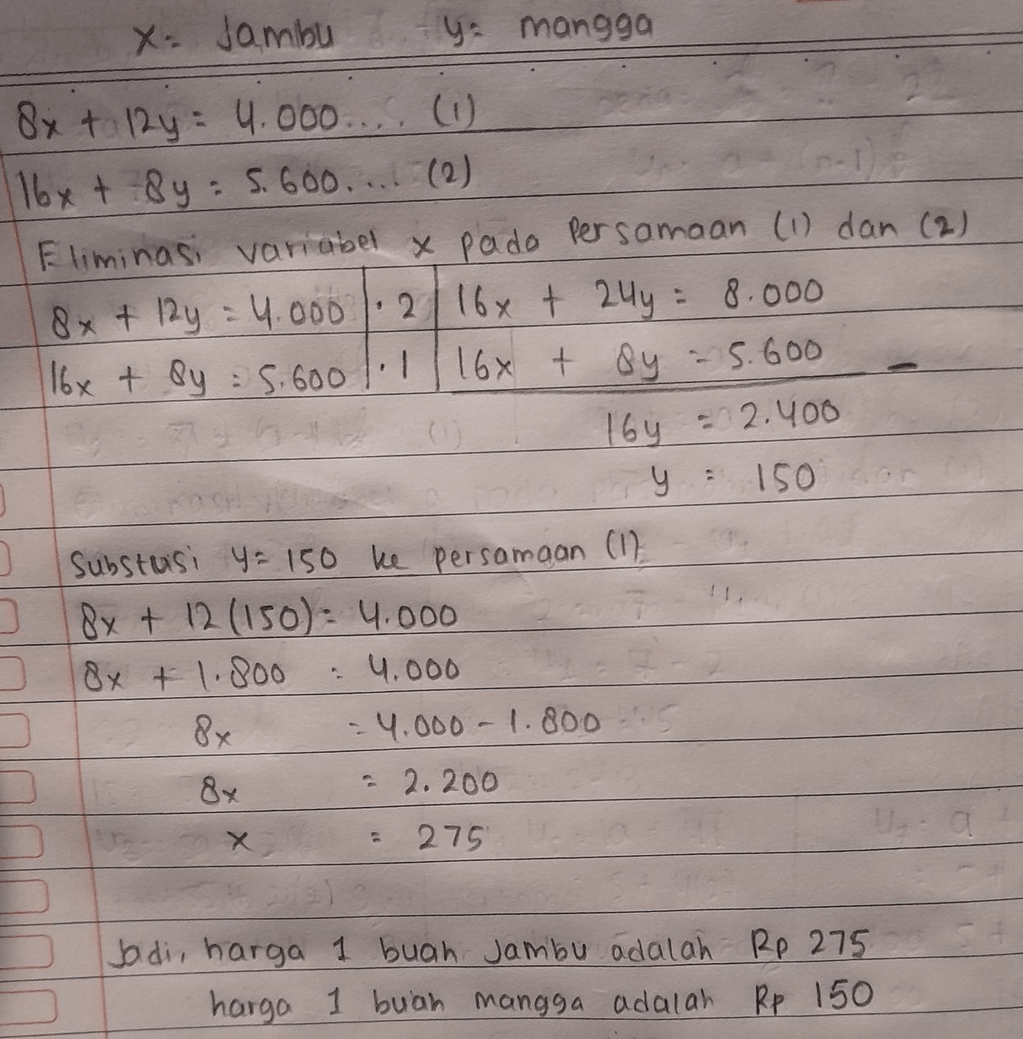 x = Jambu y = mangga
8x + 12y = 4.000.... (1)
16x + 8y = 5.600.... (2)
Eliminasi variabel x pada Persamaan (1) dan (2)
8x + 12y = 4.000 | · 2 | 16x + 24y = 8.000
16x + 8y = 5.600 | · 1 | 16x + 8y = 5.600 –
16y = 2.400
y = 150
Substusi y = 150 ke persamaan (1)
8x + 12 (150) = 4.000
8x + 1.800 = 4.000
8x = 4.000 - 1.800
8x = 2.200
x = 275
Jadi, harga 1 buah Jambu adalah Rp 275
harga 1 buah mangga adalah Rp 150